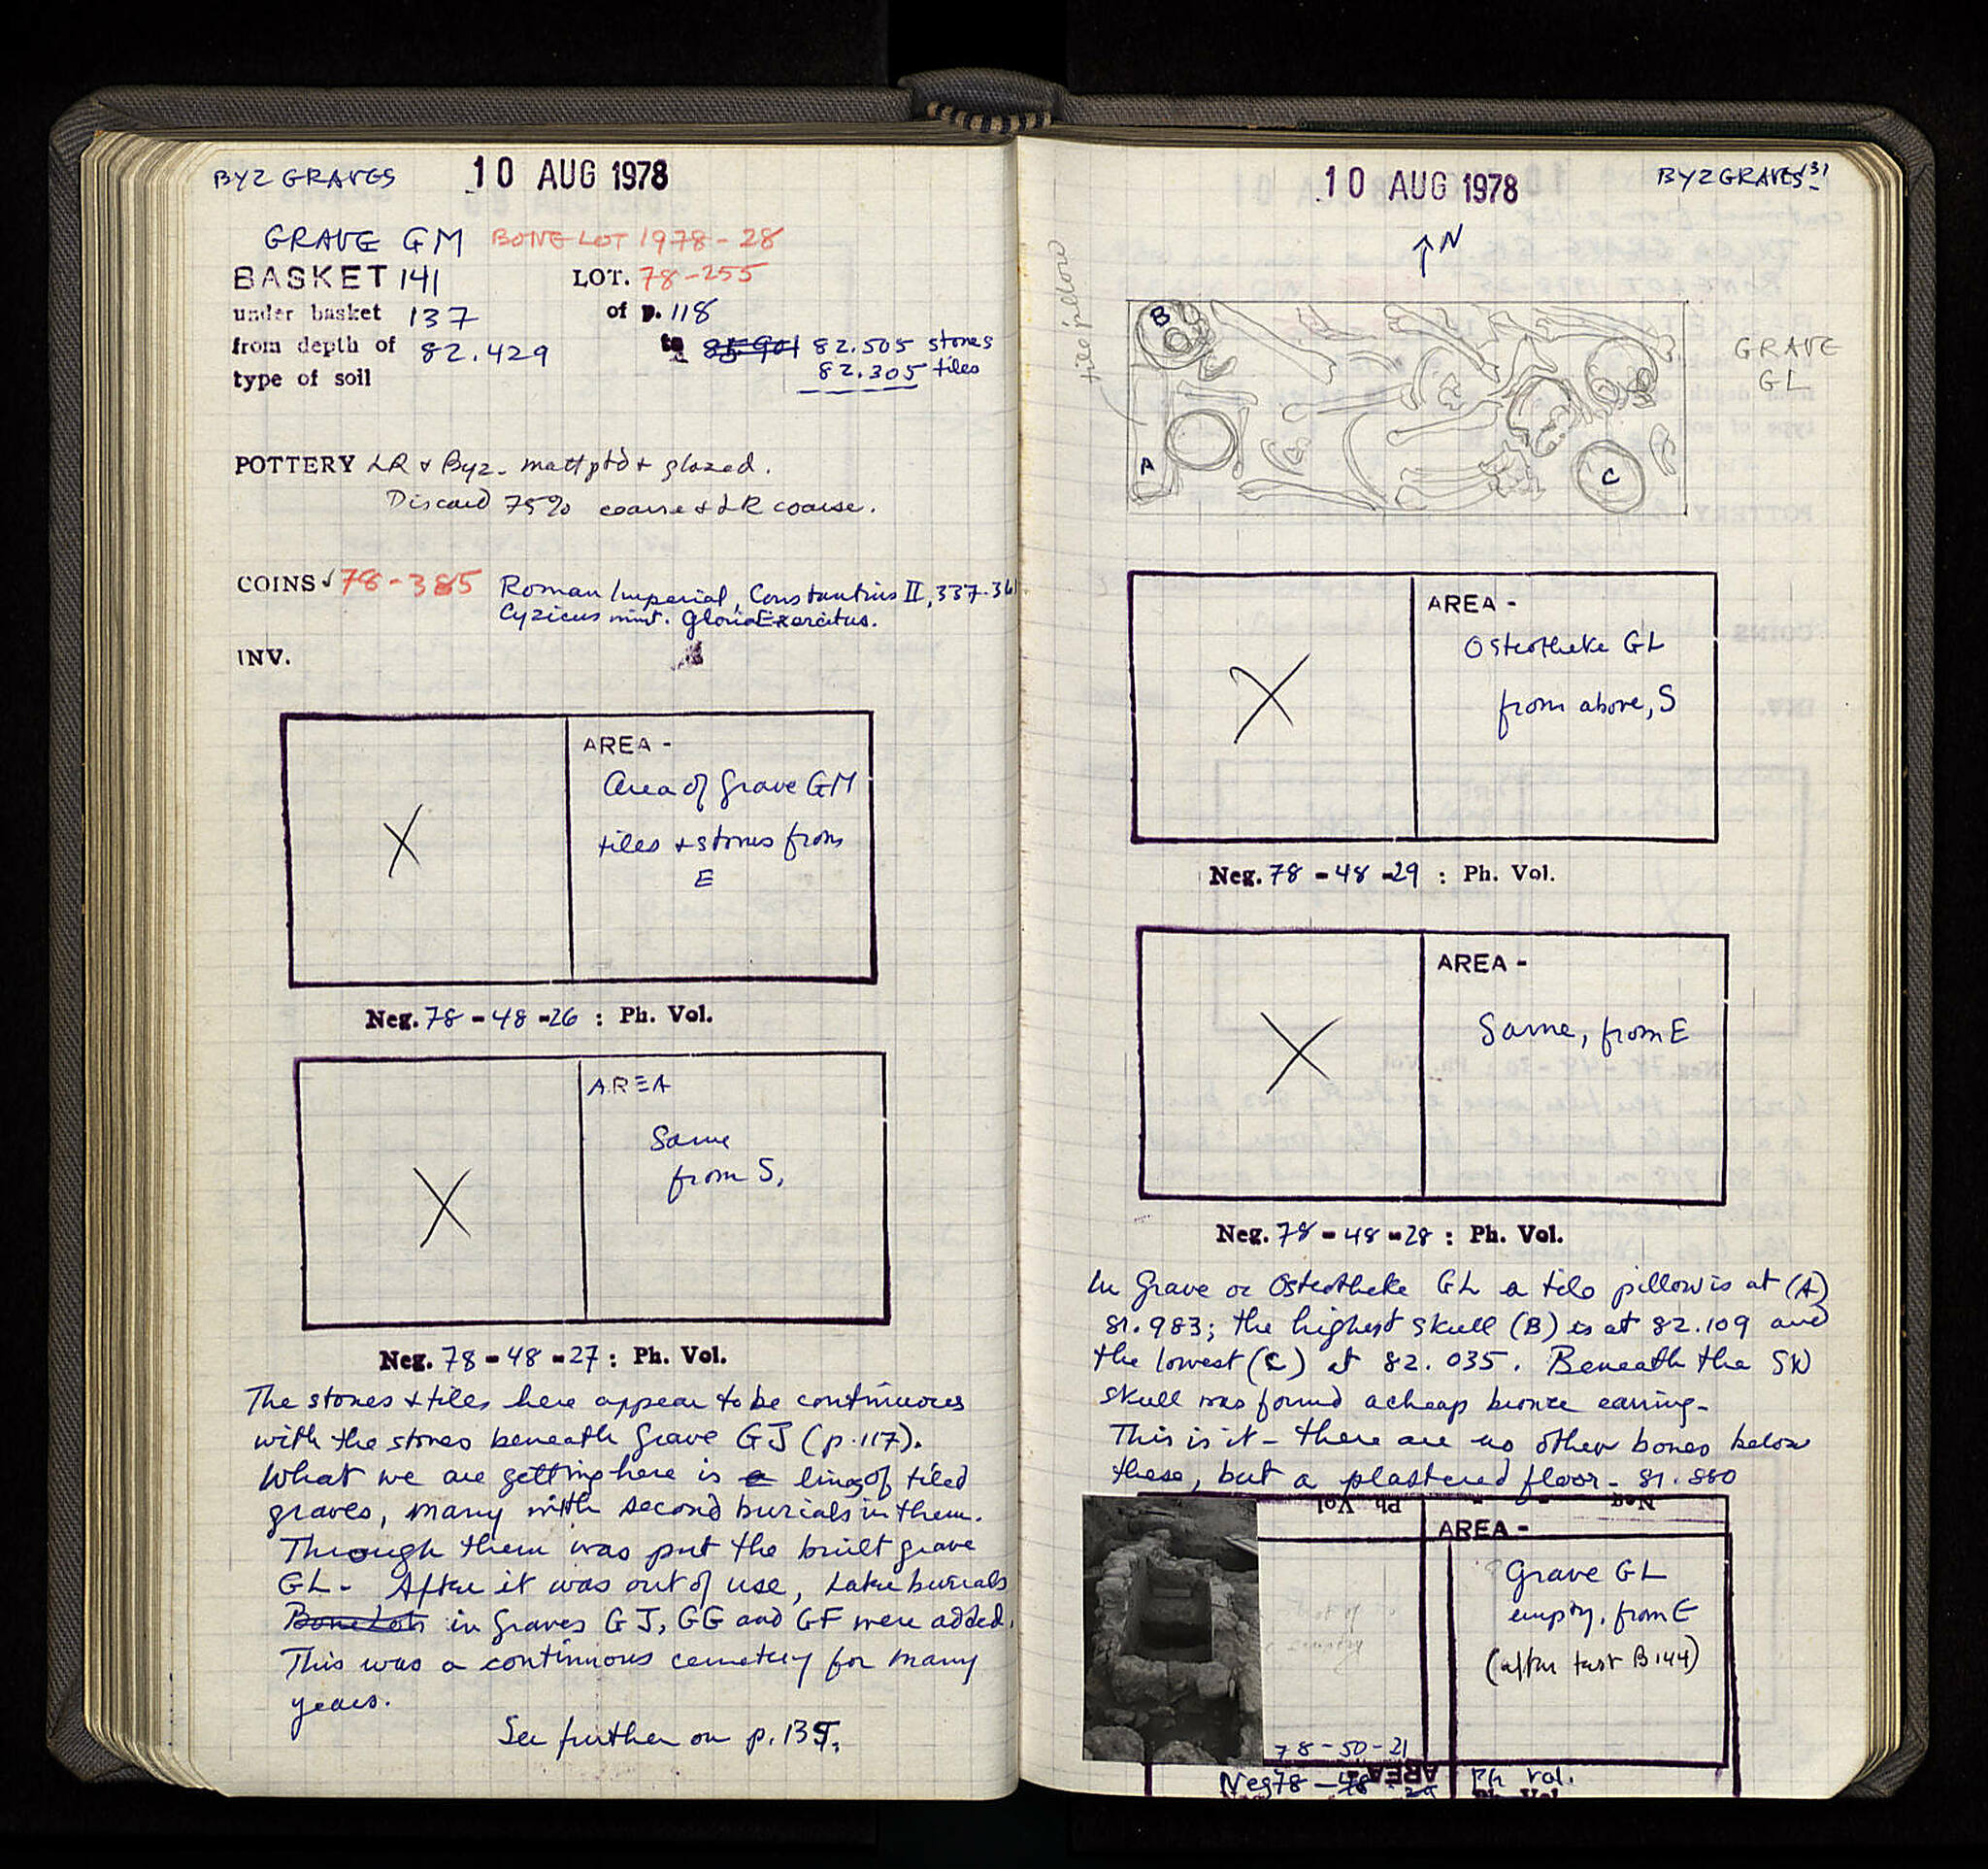 BYZ GRAVES 10 AUG 1978
GRAVE GM BONE LOT 1978-28
BASKET 141 LOT. 78-255
under basket 137 of p. 118
from depth of 82.429 to 85 901 82.505 stones
type of soil 82.305 tiles
POTTERY LR + Byz - matt ptd + glazed.
Discard 75% coarse + LR coarse.
COINS ✓ 78-385 Roman Imperial, Constantius II, 337-361
Cyzicus mint. Gloria Exercitus.
INV.
AREA -
Area of Grave GM
tiles + stones from
E
Neg. 78-48-26 : Ph. Vol.
AREA
Same
from S.
Neg. 78-48-27 : Ph. Vol.
The stones + tiles here appear to be continuous
with the stones beneath Grave GJ (p. 117).
What we are getting here is a lines of tiled
graves, many with second burials in them.
Through them was put the built grave
GL - After it was out of use, later burials
Bone Lots in Graves GJ, GG and GF were added.
This was a continuous cemetery for many
years.
See further on p. 135.
10 AUG 1978 BYZ GRAVES 131
↑N
tile pillow
B
GRAVE
GL
A
C
AREA -
Osteotheke GL
from above, S
Neg. 78-48-29 : Ph. Vol.
AREA -
Same, from E
Neg. 78-48-28 : Ph. Vol.
In Grave or Osteotheke GL a tile pillow is at (A)
81.983; the highest skull (B) is at 82.109 and
the lowest (C) at 82.035. Beneath the SW
skull was found a cheap bronze earring-
This is it - there are no other bones below
these, but a plastered floor - 81.880
Neg. - - Ph Vol
AREA -
Grave GL
empty, from E
(after test B 144)
78-50-21
AREA -
Neg 78-48-29 Ph Vol.
Ph. Vol